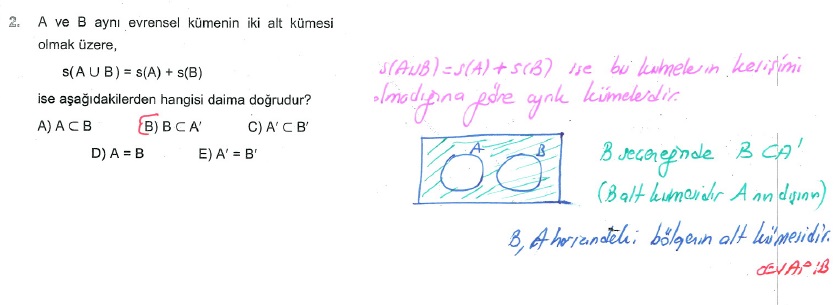 2. A ve B aynı evrensel kümenin iki alt kümesi
olmak üzere,
s(A ∪ B) = s(A) + s(B)
ise aşağıdakilerden hangisi daima doğrudur?
A) A ⊂ B B) B ⊂ A′ C) A′ ⊂ B′
D) A = B E) A′ = B′
s(A∪B)=s(A)+s(B) ise bu kümelerin kesişimi
olmadığına göre ayrık kümelerdir.
A B
B seçeneğinde B ⊂ A′
(B alt kümesidir A nın dışının)
B, A haricindeki bölgenin alt kümesidir.
CEVAP: B